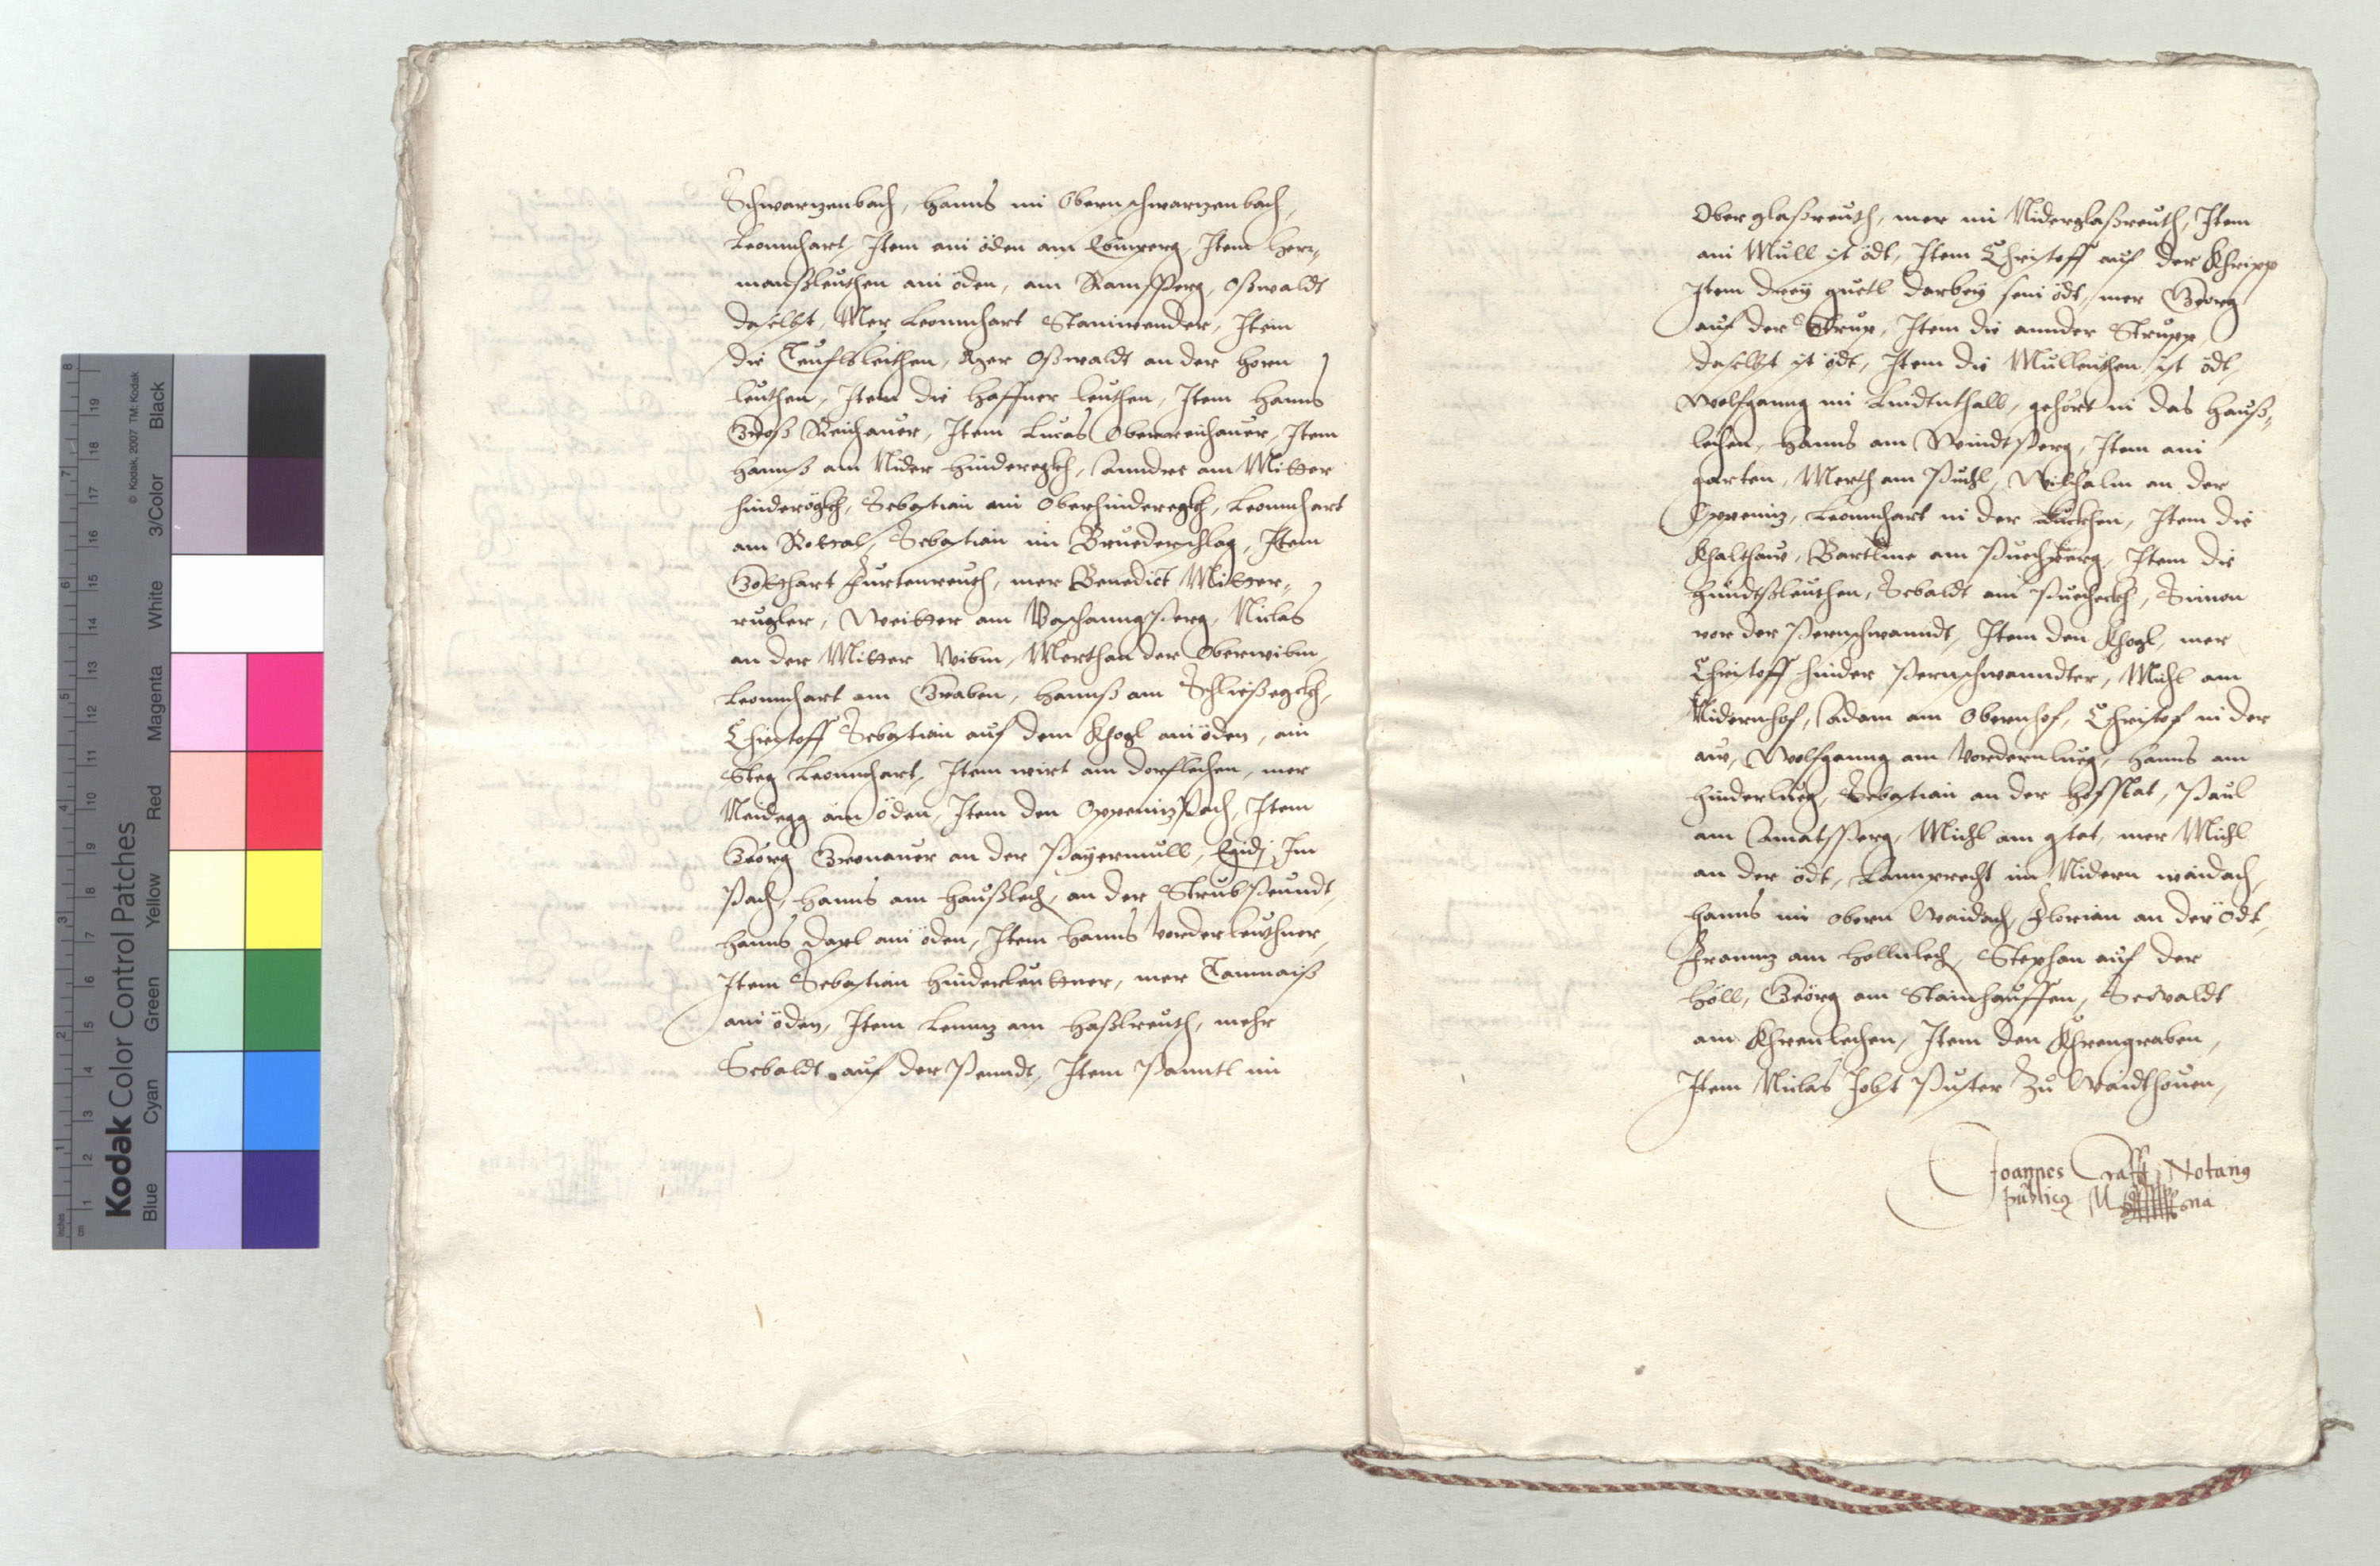 Schwarzenbach, Hanns im Obernschwarzenbach,
Leonnhart, Item ain öden am Lonperg, Item Herz-
manßleuthen ain öden, am Ramsperg, Oßwaldt
daselbst, Mer Leonnhart Stainwender, Item
die Teuflsleithen, Mer Oßwaldt an der Horn
leuthen, Item die Haffner leuthen, Item Hanns
Groß Reichauer, Item Lucas Oberreichauer, Item
Hannß am Nider Hinderegkh, Anndre am Mitter
hinderögkh, Sebastian am Oberhinderegkh, Leonnhart
am Rotral, Sebastian im Bruederschlag, Item
Gotthart Furtenreuth, mer Benedict Mitter-
rugler, Weitter am Paschanngperg, Niclas
an der Mitter Wibm, Merth an der Oberwibm,
Leonnhart am Graben, Hannß am Schließegckh,
Christoff Sebastian auf dem Khogl ain öden, am
Steg Leonnhart, Item wirt am dorflehen, mer
Neidegg ain öden, Item den Oppenizpach, Item
Georg Gronauer an der Payermull, Egidj Im
Pach, Hanns am Haußlech, an der Strubpeundt,
Hanns Daxl ain öden, Item Hanns Vorderleuthner,
Item Sebastian Hinderleuttner, mer Tannaiß
ain öden, Item Lennz am Haßlreuth, mehr
Sebaldt auf der Peundt, Item Panntl im
Oberglaßreuth, mer im Niderglaßreuth, Item
ain Mull ist ödt, Item Christoff auf der Khripp
Item drey guetl darbey sein ödt, mer Georg
auf der Strup, Item die annder Strupp,
daselbst ist ödt, Item die Mulleuthen ist ödt,
Wolfganng im Lindtnthall, gehört in das Hauß-
lehen, Hanns am Windtperg, Item ain
garten, Merth am Puhl, Wilhalm an der
Oppeniz, Leonnhart in der Luckhen, Item die
Khalthaw, Bartlme am Puechperg, Item die
Hundtsleuthen, Sebaldt am Puecheckh, Simon
vor der Pernschwanndt, Item den Khogl, mer
Christoff hinder Pernschwanndter, Michl am
Nidernhof, Adam am Obernhof, Christof in der
aw, Wolfganng am Vordernlueg, Hanns am
Hinderlueg, Sebastian an der Hofstat, Paul
am Amatsperg, Michl am gstet, mer Michl
an der ödt, Lamprecht im Nidern waidach,
Hanns im obern Waidach, Florian an der Ödt,
Frannz am Hollnlech, Stephan auf der
Höll, Georg am Stainhauffen, Sewaldt
am Khrenlehen, Item den Khrengraben,
Item Niclas Jobst Puster zu Waidhouen,
Joannes Crafft Notarius
publicus